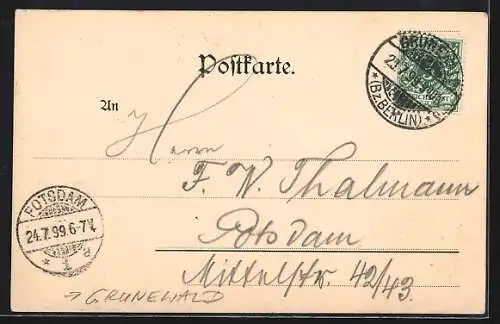 Postkarte.
GRUNEWALD
(BZ.BERLIN)
An
H
Herrn
F. W. Thalmann
Potsdam
Mittelstr. 42/43.
POTSDAM
24.7.99.6-7V.
1
→ GRUNEWALD